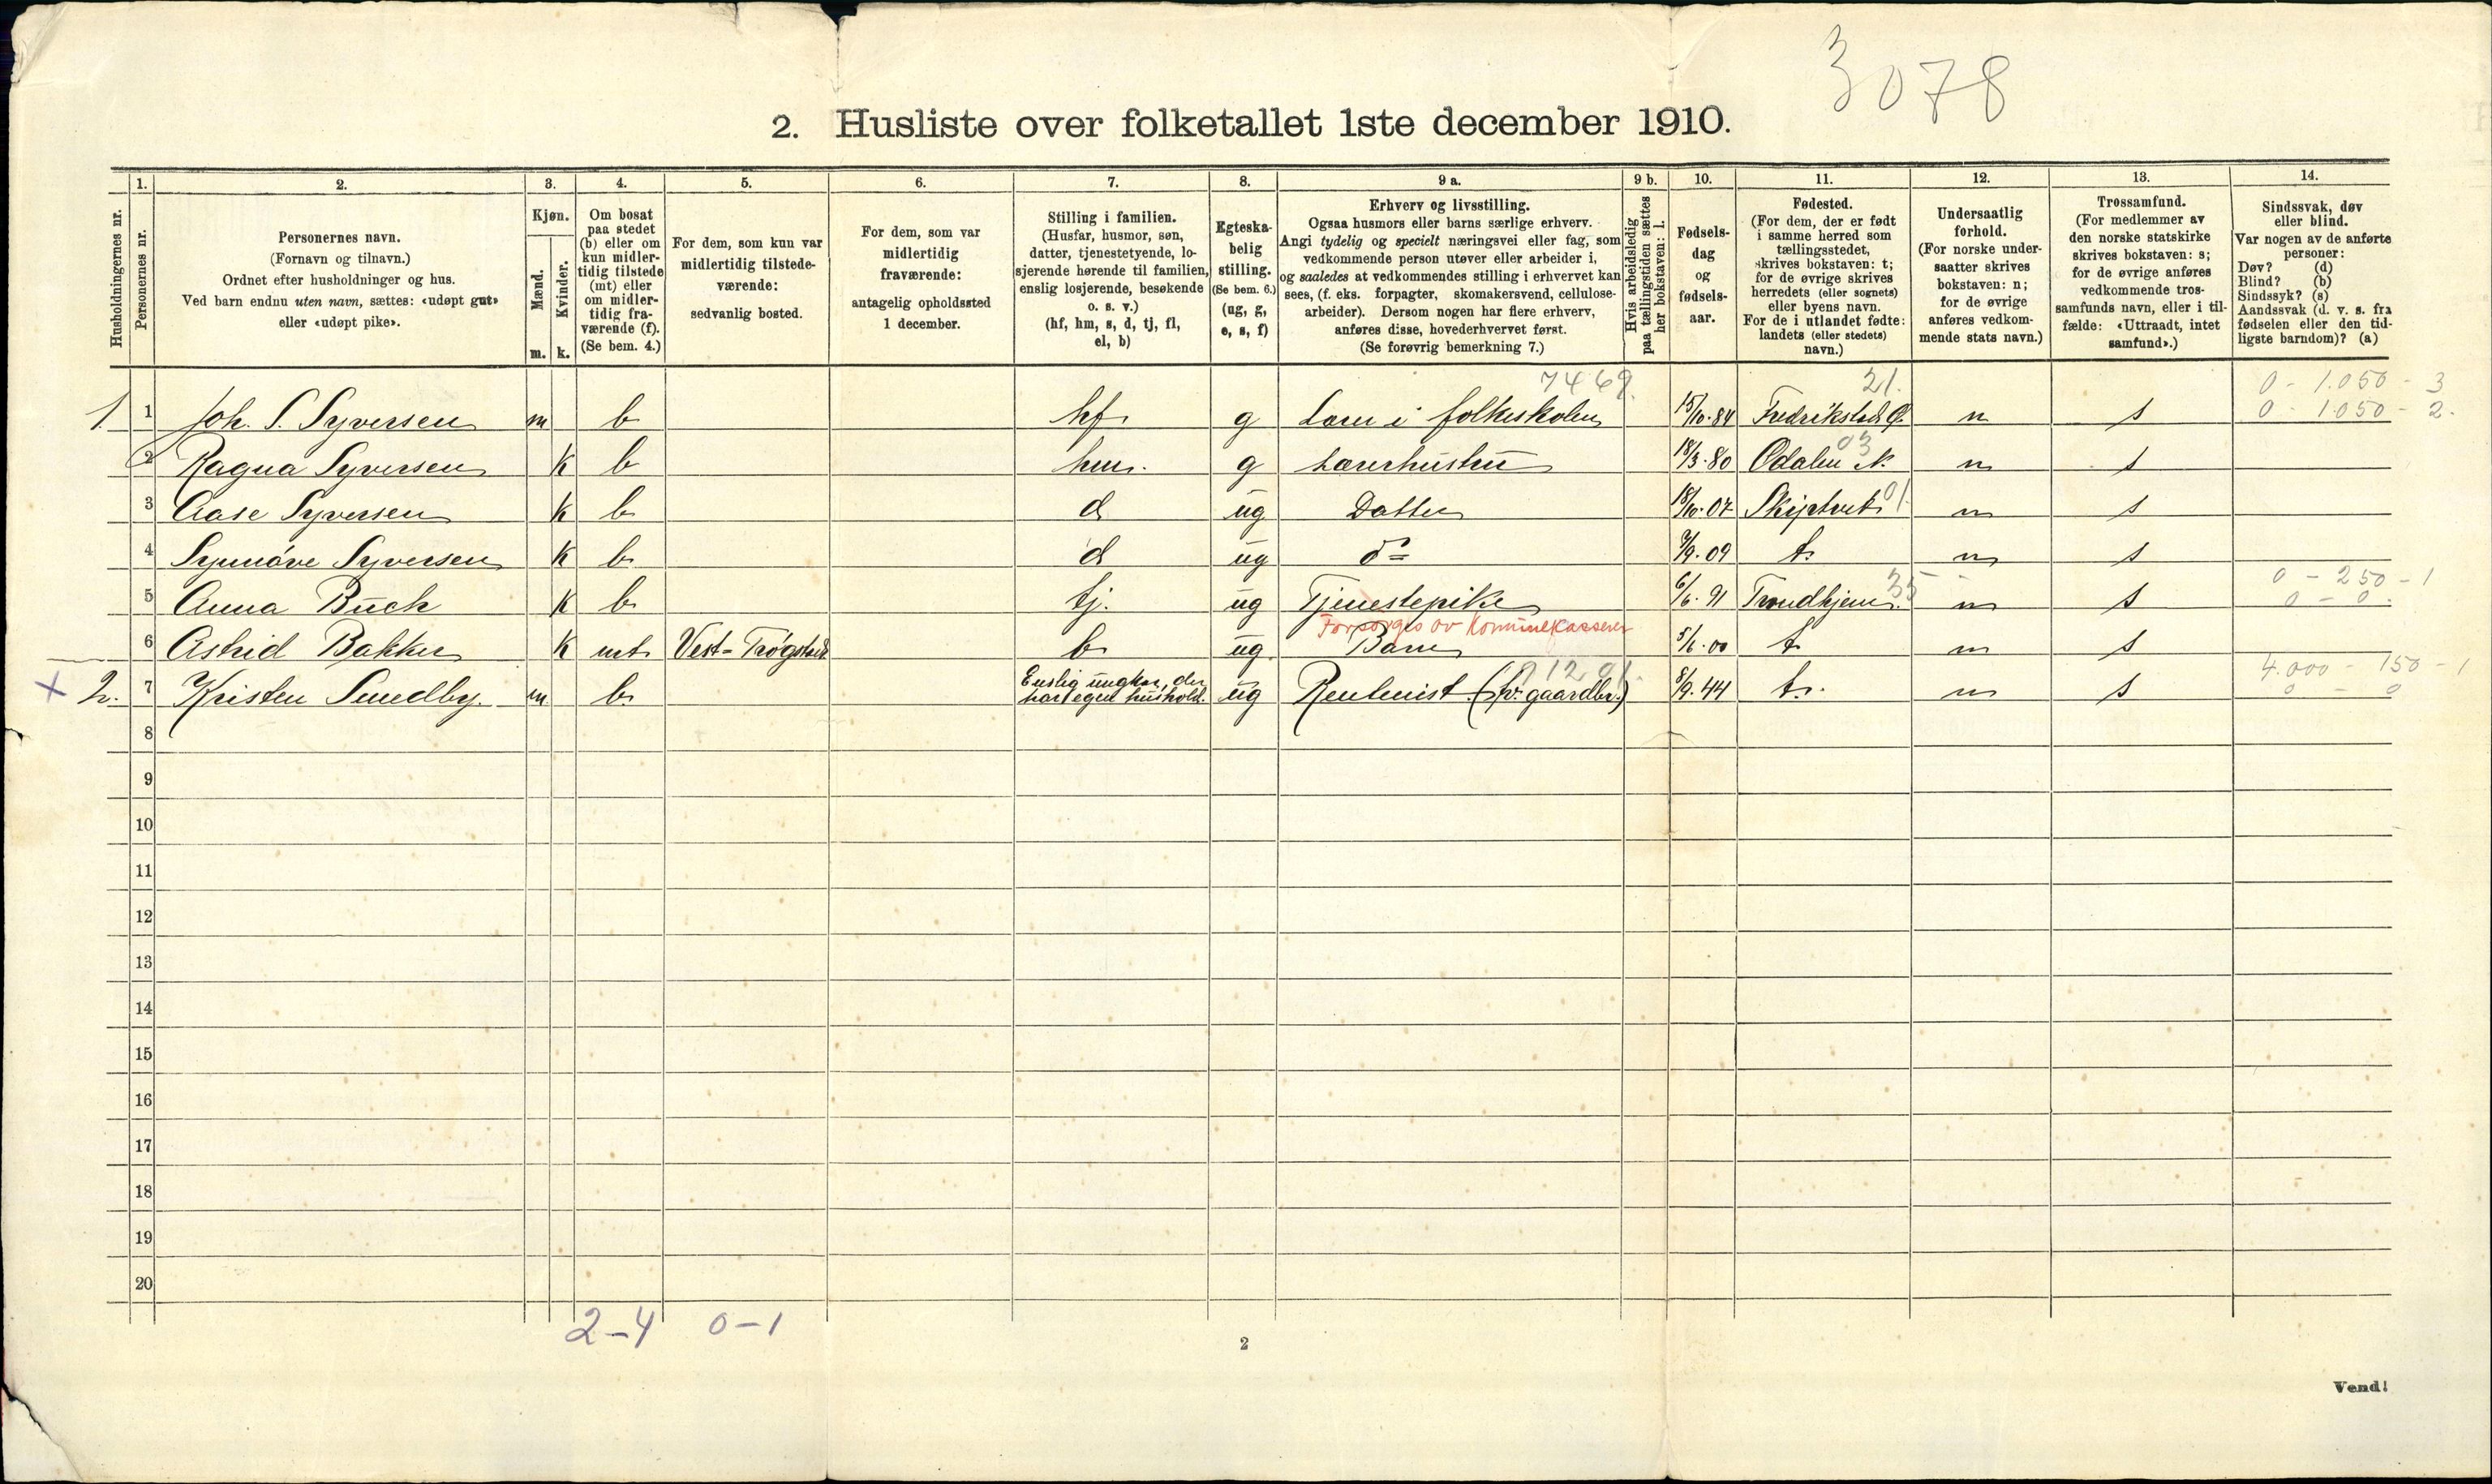 3078
2. Husliste over folketallet 1ste december 1910.
Husholdningernes nr.
1. Personernes nr.
2. Personernes navn. (Fornavn og tilnavn.) Ordnet efter husholdninger og hus. Ved barn endnu uten navn, sættes: «udøpt gut» eller «udøpt pike».
3. Kjøn. Mænd. m. Kvinder. k.
4. Om bosat paa stedet (b) eller om kun midlertidig tilstede (mt) eller om midlertidig fraværende (f). (Se bem. 4.)
5. For dem, som kun var midlertidig tilstedeværende: sedvanlig bosted.
6. For dem, som var midlertidig fraværende: antagelig opholdssted 1 december.
7. Stilling i familien. (Husfar, husmor, søn, datter, tjenestetyende, losjerende hørende til familien, enslig losjerende, besøkende o. s. v.) (hf, hm, s, d, tj, fl, el, b)
8. Egteskabelig stilling. (Se bem. 6.) (ug, g, e, s, f)
9 a. Erhverv og livsstilling. Ogsaa husmors eller barns særlige erhverv. Angi tydelig og specielt næringsvei eller fag, som vedkommende person utøver eller arbeider i, og saaledes at vedkommendes stilling i erhvervet kan sees, (f. eks. forpagter, skomakersvend, cellulosearbeider). Dersom nogen har flere erhverv, anføres disse, hovederhvervet først. (Se forøvrig bemerkning 7.)
9 b. Hvis arbeidsledig paa tællingstiden sættes her bokstaven: l.
10. Fødselsdag og fødselsaar.
11. Fødested. (For dem, der er født i samme herred som tællingsstedet, skrives bokstaven: t; for de øvrige skrives herredets (eller sognets) eller byens navn. For de i utlandet fødte: landets (eller stedets) navn.)
12. Undersaatlig forhold. (For norske undersaatter skrives bokstaven: n; for de øvrige anføres vedkommende stats navn.)
13. Trossamfund. (For medlemmer av den norske statskirke skrives bokstaven: s; for de øvrige anføres vedkommende trossamfunds navn, eller i tilfælde: «Uttraadt, intet samfund».)
14. Sindssvak, døv eller blind. Var nogen av de anførte personer: Døv? (d) Blind? (b) Sindssyk? (s) Aandssvak (d. v. s. fra fødselen eller den tidligste barndom)? (a)
7469. 21. 0 - 1.050 - 3
1 1 Joh. S. Syversen m b hf g Lærer i folkeskolen 15/10.84 Fredrikstad Ø. n s 0 - 1.050 - 2.
03
2 Ragna Syversen k b hm. g Lærerhustru 18/3.80 Odalen N. n s
3 Aase Syversen k b d ug Datter 18/10.07 Skiptvet 01 n s
4 Synnøve Syversen k b d ug do 9/9.09 t. n s
35 0 - 250 - 1
5 Anna Buch k b tj. ug Tjenestepike 6/6.91 Trondhjem. n s 0 - 0.
Forsørges av Kommunekassereren
6 Astrid Bakken k mt Vest-Trøgstad b ug Barn 5/6.00 t. n s
Enslig ungkar, der 91201. 4.000 - 150 - 1
+ 2. 7 Kristen Smedby. m. b. har egen hushold. ug Rentenist. (fv. gaardbr.) 8/9.44 t. n s 0 - 0
8
9
10
11
12
13
14
15
16
17
18
19
20
2-4 0-1
2
Vend!